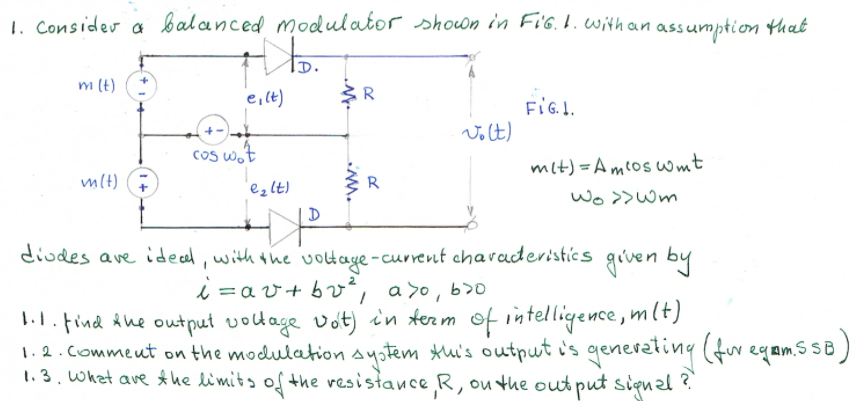 1. Consider a balanced modulator shown in FIG. 1. with an assumption that
D.
m(t)
+
-
e₁(t)
R
FIG.1.
+-
v₀(t)
cos w₀t
m(t) = Amcos wmt
m(t)
-
+
e₂(t)
R
w₀ >> wm
D
diodes are ideal, with the voltage-current characteristics given by
i = av + bv², a>0, b>0
1.1. find the output voltage v₀(t) in term of intelligence, m(t)
1.2. Comment on the modulation system this output is generating (for eqam. SSB)
1.3. What are the limits of the resistance, R, on the output signal ?